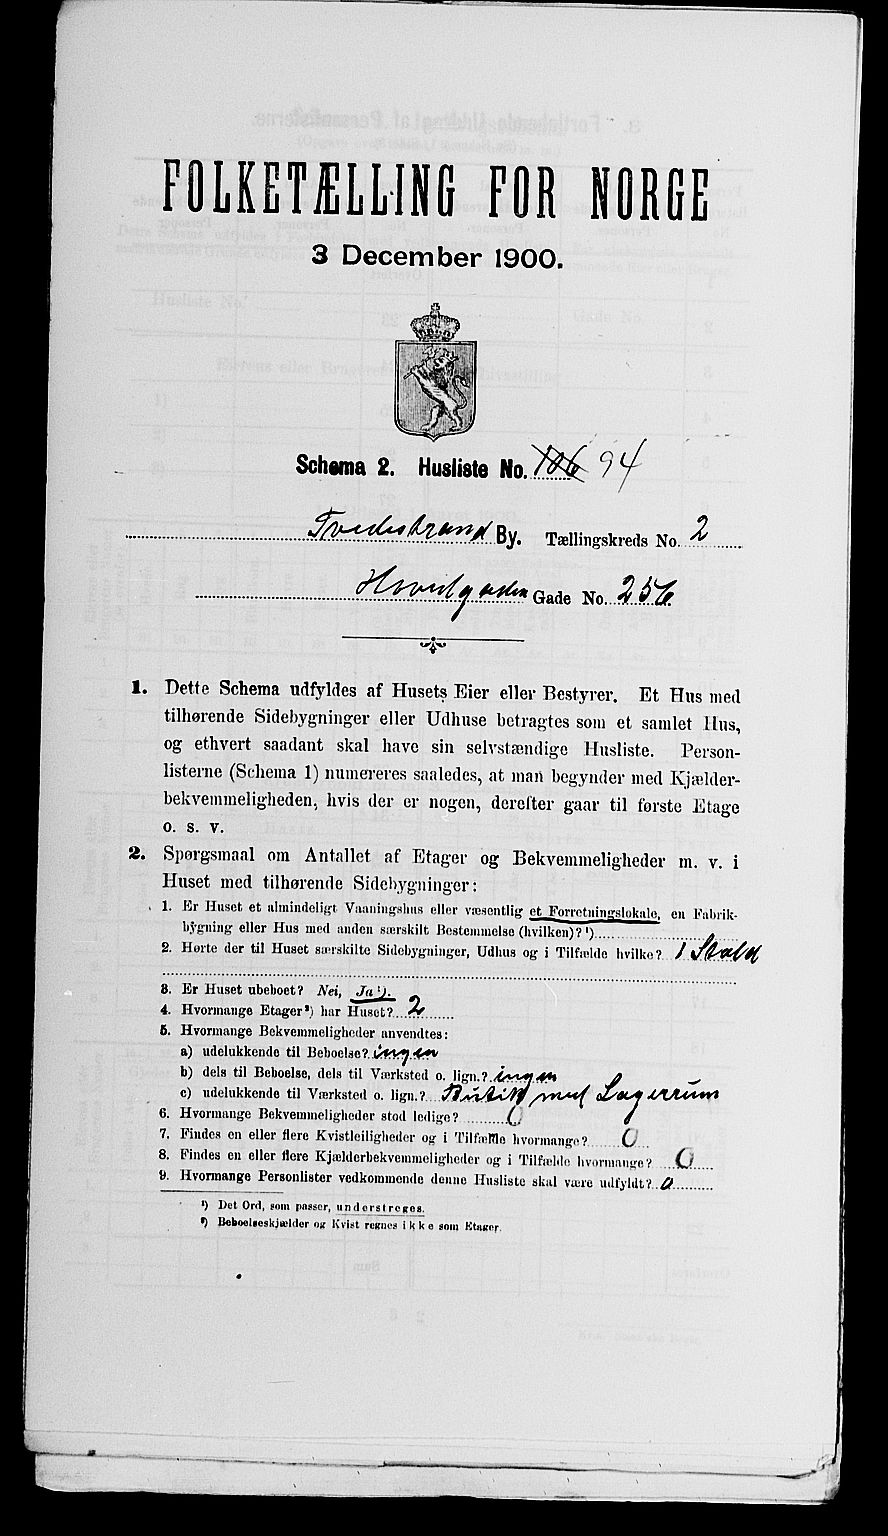 FOLKETÆLLING FOR NORGE
3 December 1900.
Schema 2. Husliste No. 106 94
Tvedestrand By. Tællingskreds No. 2
Hovedgaden Gade No. 256
1. Dette Schema udfyldes af Husets Eier eller Bestyrer. Et Hus med
tilhørende Sidebygninger eller Udhuse betragtes som et samlet Hus,
og ethvert saadant skal have sin selvstændige Husliste. Person-
listerne (Schema 1) numereres saaledes, at man begynder med Kjælder-
bekvemmeligheden, hvis der er nogen, derefter gaar til første Etage
o. s. v.
2. Spørgsmaal om Antallet af Etager og Bekvemmeligheder m. v. i
Huset med tilhørende Sidebygninger:
1. Er Huset et almindeligt Vaaningshus eller væsentlig et Forretningslokale, en Fabrik-
bygning eller Hus med anden særskilt Bestemmelse (hvilken)? ¹)
2. Hørte der til Huset særskilte Sidebygninger, Udhus og i Tilfælde hvilke? 1 Stald
3. Er Huset ubeboet? Nei, Ja ¹).
4. Hvormange Etager ²) har Huset? 2
5. Hvormange Bekvemmeligheder anvendtes:
a) udelukkende til Beboelse? ingen
b) dels til Beboelse, dels til Værksted o. lign.? ingen
c) udelukkende til Værksted o. lign.? Butik med Lagerrum
6. Hvormange Bekvemmeligheder stod ledige? 0
7. Findes en eller flere Kvistleiligheder og i Tilfælde hvormange? 0
8. Findes en eller flere Kjælderbekvemmeligheder og i Tilfælde hvormange? 0
9. Hvormange Personlister vedkommende denne Husliste skal være udfyldt? 0
¹) Det Ord, som passer, understreges.
²) Beboelseskjælder og Kvist regnes ikke som Etager.